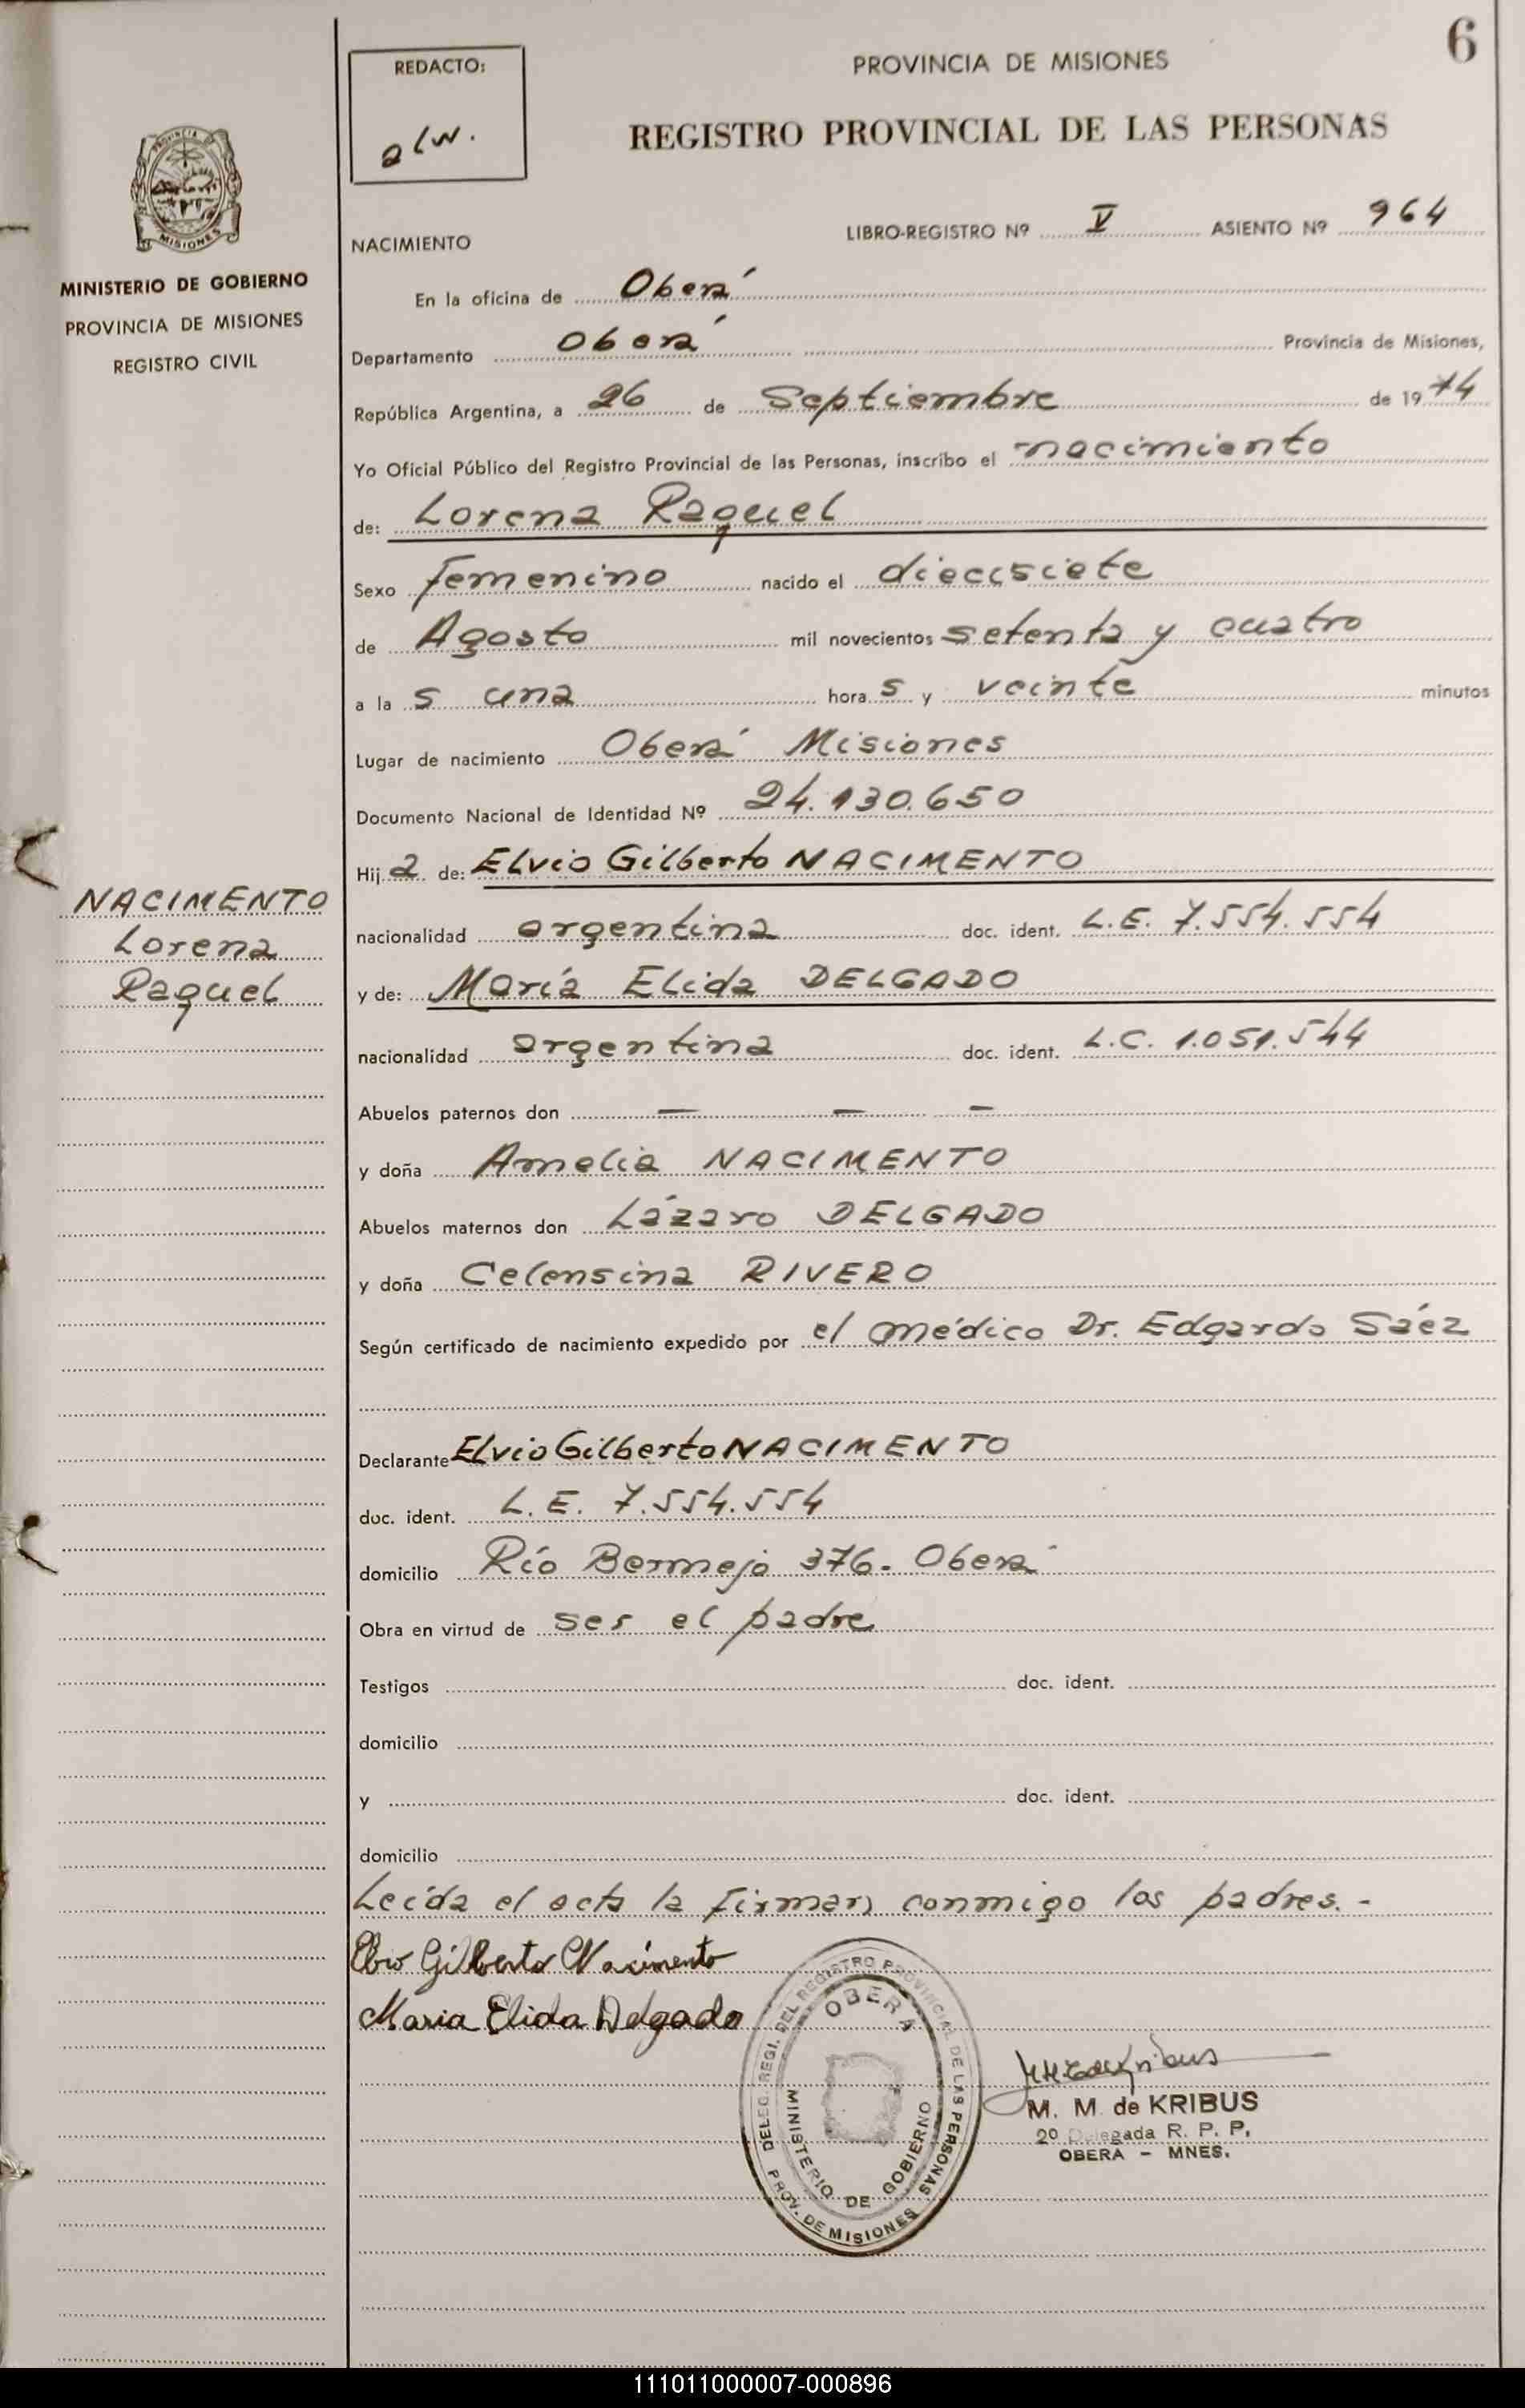 6
REDACTO:
PROVINCIA DE MISIONES
REGISTRO PROVINCIAL DE LAS PERSONAS
PROVINCIA DE MISIONES
MINISTERIO DE GOBIERNO
PROVINCIA DE MISIONES
REGISTRO CIVIL
NACIMIENTO LIBRO-REGISTRO Nº V ASIENTO Nº 964
En la oficina de Oberá
Departamento Oberá Provincia de Misiones,
República Argentina, a 26 de Septiembre de 1974
Yo Oficial Público del Registro Provincial de las Personas, inscribo el nacimiento
de: Lorena Raquel
Sexo femenino nacido el diecisiete
de Agosto mil novecientos setenta y cuatro
a la s una hora s y veinte minutos
Lugar de nacimiento Oberá Misiones
Documento Nacional de Identidad Nº 24.130.650
Hij a de: Elvio Gilberto NACIMENTO
NACIMENTO
Lorena
Raquel
nacionalidad argentina doc. ident. L.E. 7.554.554
y de: María Elida DELGADO
nacionalidad argentina doc. ident. L.C. 1.051.544
Abuelos paternos don — — —
y doña Amelia NACIMENTO
Abuelos maternos don Lázaro DELGADO
y doña Celensina RIVERO
Según certificado de nacimiento expedido por el médico Dr. Edgardo Sáez
Declarante Elvio Gilberto NACIMENTO
doc. ident. L.E. 7.554.554
domicilio Río Bermejo 376. Oberá
Obra en virtud de ser el padre
Testigos doc. ident.
domicilio
y doc. ident.
domicilio
Leída el acta la firman conmigo los padres.-
Elvio Gilberto Nacimento
Maria Elida Delgado
DELEG. REGI. DEL REGISTRO PROVINCIAL DE LAS PERSONAS
OBERA
MINISTERIO DE GOBIERNO
PROV. DE MISIONES
M. M. de KRIBUS
2º Delegada R. P. P.
OBERA - MNES.
111011000007-000896